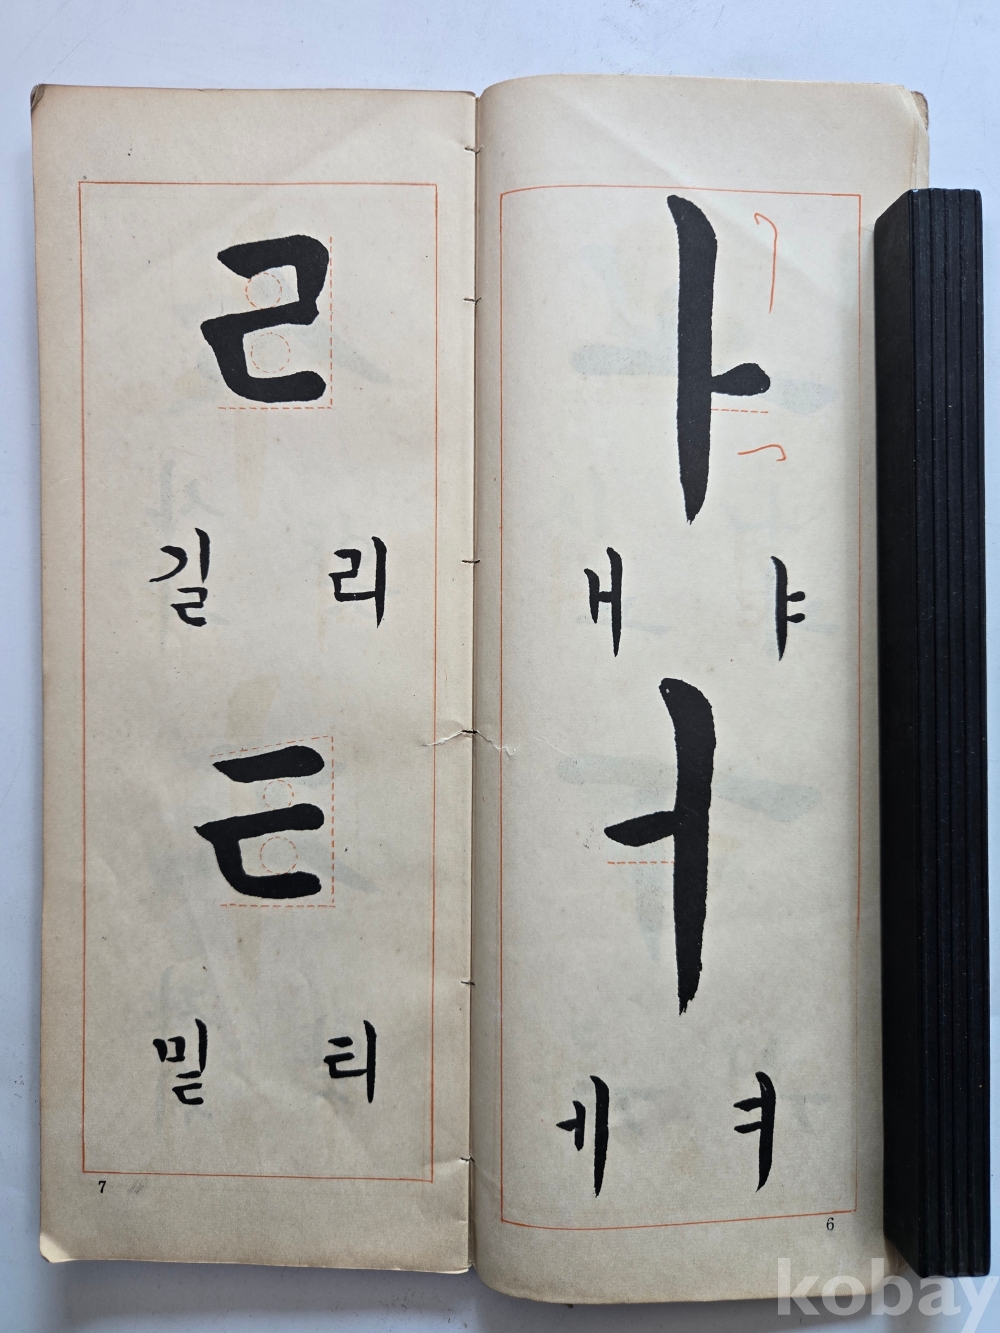 ㅏ
ㅑ ㅐ
ㅓ
ㅕ ㅔ
6
ㄹ
리 길
ㅌ
티 밑
7
kobay